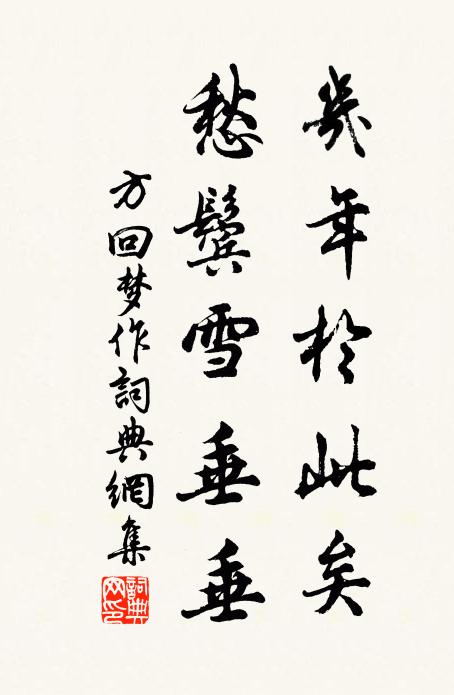 幾年於此矣
愁鬢雪垂垂
方回梦作詞典網集
詞典網印